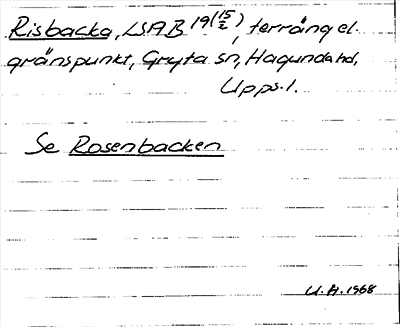 Risbacka, LSAB 19(15/2), terräng el.
gränspunkt, Gryta sn, Hagunda hd,
Upps. l.
Se Rosenbacken
U.A. 1968